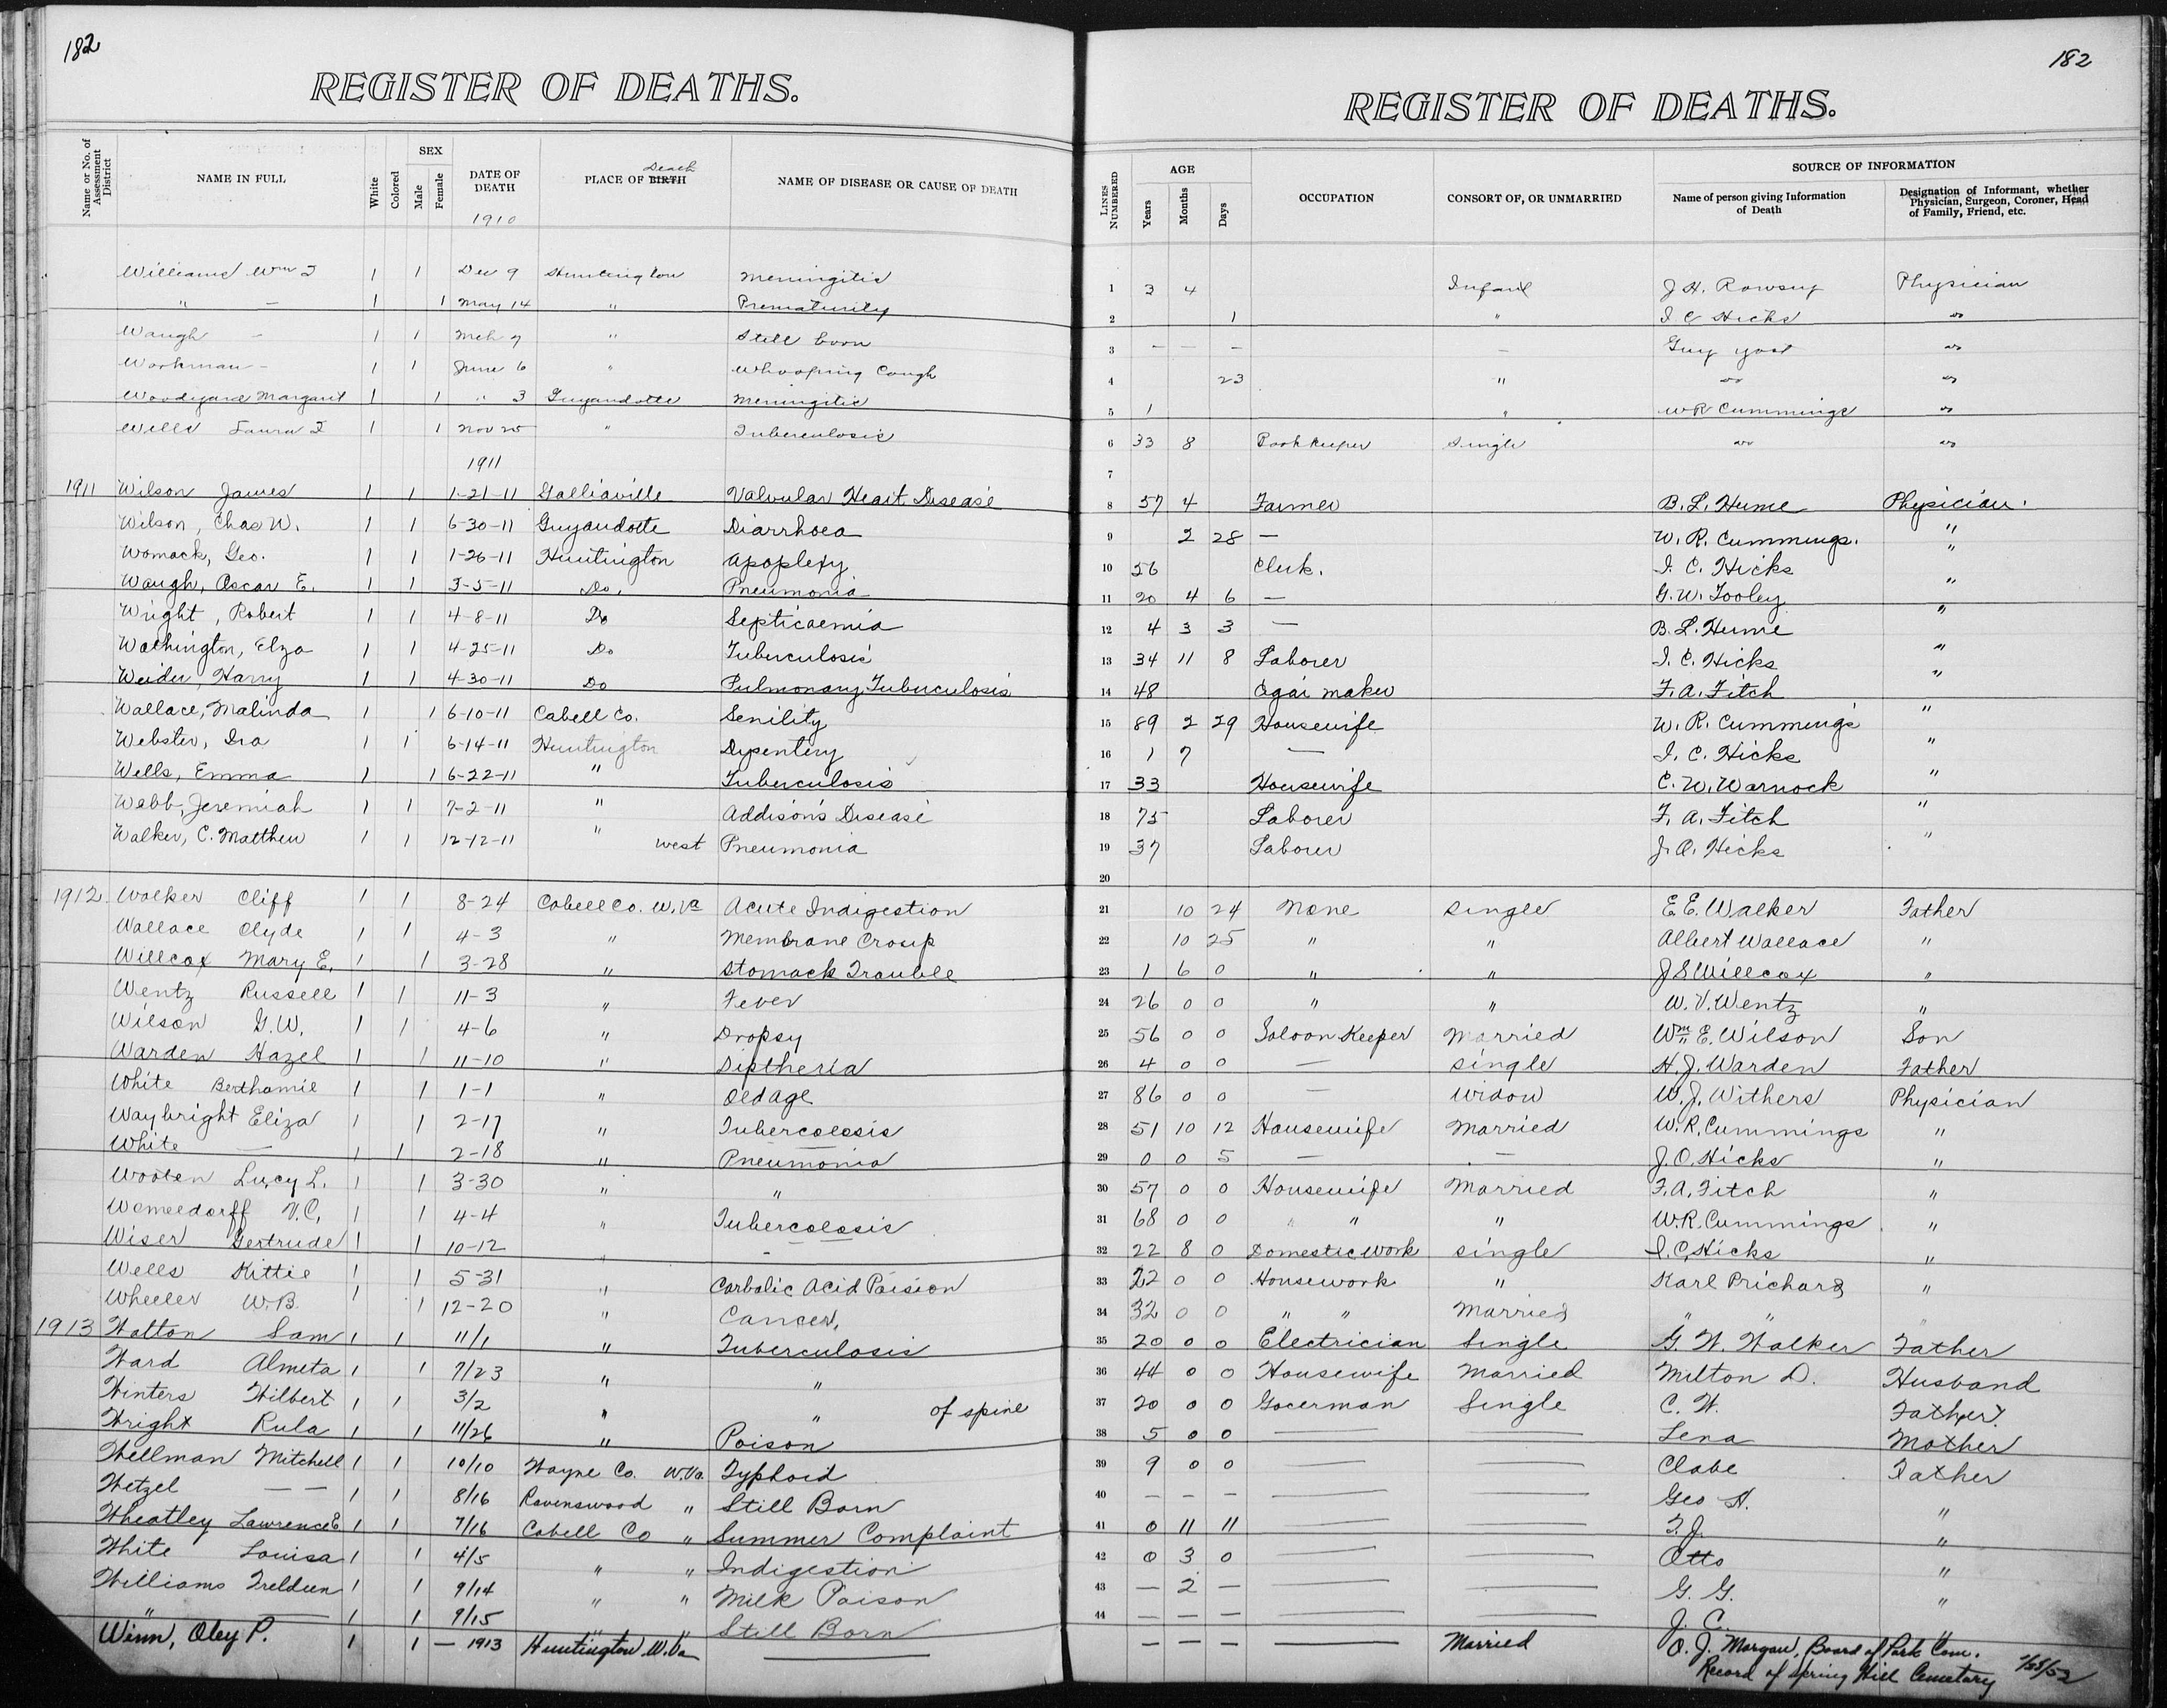 182
REGISTER OF DEATHS.
Name or No. of Assessment District
NAME IN FULL
White
Colored
SEX
Male
Female
DATE OF DEATH
1910
PLACE OF BIRTH Death
NAME OF DISEASE OR CAUSE OF DEATH
Williams Wm 1 1 Dec 9 Huntington Meningitis
" — 1 1 May 14 " Prematurity
Waugh — 1 1 Mch 7 " Still born
Workman — 1 1 June 6 " Whooping Cough
Woodyard Margaret 1 1 " 3 Guyandotte Meningitis
Wells Laura 1 1 Nov 25 " Tuberculosis
1911
1911 Wilson James 1 1 1-21-11 Galliaville Valvular Heart Disease
Wilson, Chas W. 1 1 6-30-11 Guyandotte Diarrhoea
Womack, Geo. 1 1 1-26-11 Huntington Apoplexy
Waugh, Oscar E. 1 1 3-5-11 Do. Pneumonia
Wright, Robert 1 1 4-8-11 Do Septicaemia
Wathington, Elza 1 1 4-25-11 Do Tuberculosis
Weider, Harry 1 1 4-30-11 Do Pulmonary Tuberculosis
Wallace, Malinda 1 1 6-10-11 Cabell Co. Senility
Webster, Ira 1 1 6-14-11 Huntington Dysentery
Wells, Emma 1 1 6-22-11 " Tuberculosis
Webb, Jeremiah 1 1 7-2-11 " Addison's Disease
Walker, C. Matthew 1 1 12-12-11 " west Pneumonia
1912 Walker Cliff 1 1 8-24 Cabell Co. W. Va Acute Indigestion
Wallace Clyde 1 1 4-3 " Membrane Croup
Willcox Mary E. 1 1 3-28 " Stomack Trouble
Wentz Russell 1 1 11-3 " Fever
Wilson G.W. 1 1 4-6 " Dropsy
Warden Hazel 1 1 11-10 " Diptheria
White Berthamie 1 1 1-1 " Old age
Waybright Eliza 1 1 2-17 " Tubercolosis
White — 1 1 2-18 " Pneumonia
Wooten Lucy L. 1 1 3-30 " "
Womeldorff V.C. 1 1 4-4 " Tubercolosis
Wiser Gertrude 1 1 10-12 " —
Wells Kittie 1 1 5-31 " Carbolic Acid Poision
Wheeler W.B. 1 1 12-20 " Cancer,
1913 Walton Sam 1 1 11/1 " Tuberculosis
Ward Almeta 1 1 7/23 " "
Winters Wilbert 1 1 3/2 " " of spine
Wright Rula 1 1 11/26 " Poison
Wellman Mitchell 1 1 10/10 Wayne Co. W.Va. Typhoid
Wetzel — — 1 1 8/16 Ravenswood " Still Born
Wheatley Lawrence E 1 1 7/16 Cabell Co " Summer Complaint
White Louisa 1 1 4/5 " " Indigestion
Williams 1 1 9/14 " " Milk Poison
" — 1 1 9/15 " " Still Born
Winn, Oley P. 1 1 — 1913 Huntington W.Va —
182
REGISTER OF DEATHS.
LINES NUMBERED
AGE
Years
Months
Days
OCCUPATION
CONSORT OF, OR UNMARRIED
SOURCE OF INFORMATION
Name of person giving Information of Death
Designation of Informant, whether Physician, Surgeon, Coroner, Head of Family, Friend, etc.
1 3 4 Infant J H. Rowsey Physician
2 1 " I C Hicks do
3 — — — — Guy Yost do
4 23 " do do
5 1 " W R Cummings do
6 33 8 Bookkeeper Single do do
7
8 57 4 Farmer B. L. Hume Physician.
9 2 28 — W. R. Cummings. "
10 56 Clerk. I. C. Hicks "
11 20 4 6 — G. W. Tooley "
12 4 3 3 — B. L. Hume "
13 34 11 8 Laborer I. C. Hicks "
14 48 Cigar maker F. A. Fitch "
15 89 2 29 Housewife W. R. Cummings "
16 1 7 — I. C. Hicks "
17 33 Housewife C. W. Warnock "
18 75 Laborer F. A. Fitch "
19 37 Laborer J. O. Hicks "
20
21 10 24 None Single E. E. Walker Father
22 10 25 " " Albert Wallace "
23 1 6 0 " " J S Willcox "
24 26 0 0 " " W. V. Wentz "
25 56 0 0 Saloon Keeper Married Wm E. Wilson Son
26 4 0 0 — Single H. J. Warden Father
27 86 0 0 — Widow W. J. Withers Physician
28 51 10 12 Housewife Married W. R. Cummings "
29 0 0 5 — — J. O. Hicks "
30 57 0 0 Housewife Married F. A. Fitch "
31 68 0 0 " " " W. R. Cummings "
32 22 8 0 Domestic Work Single I. C. Hicks "
33 22 0 0 Housework " Karl Prichard "
34 32 0 0 " " Married " " "
35 20 0 0 Electrician Single G. W. Walker Father
36 44 0 0 Housewife Married Milton D. Husband
37 20 0 0 Gocerman Single C. W. Father
38 5 0 0 — — Lena Mother
39 9 0 0 — — Clabe Father
40 — — — — — Geo H. "
41 0 11 11 — — T. J. "
42 0 3 0 — — Otto "
43 — 2 — — — G. G. "
44 — — — — — J. C. "
— — — — Married O. J. Morgan, Board of Park Com.
Record of Spring Hill Cemetary